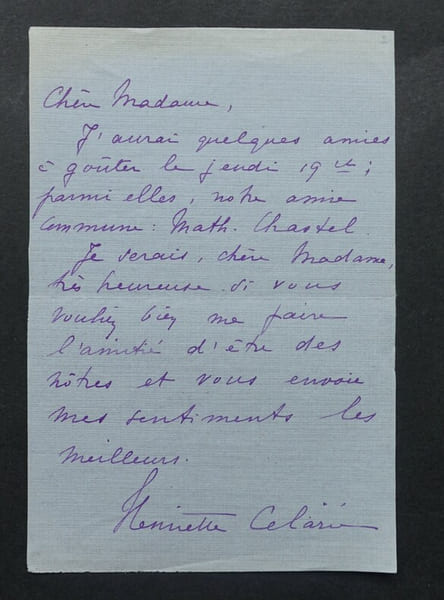 Chère Madame,
J'aurai quelques amies
à goûter le jeudi 19 ct ;
parmi elles, notre amie
commune : Math. Chastel.
Je serais, chère Madame,
très heureuse si vous
vouliez bien me faire
l'amitié d'être des
nôtres et vous envoie
mes sentiments les
meilleurs.
Henriette Celarié